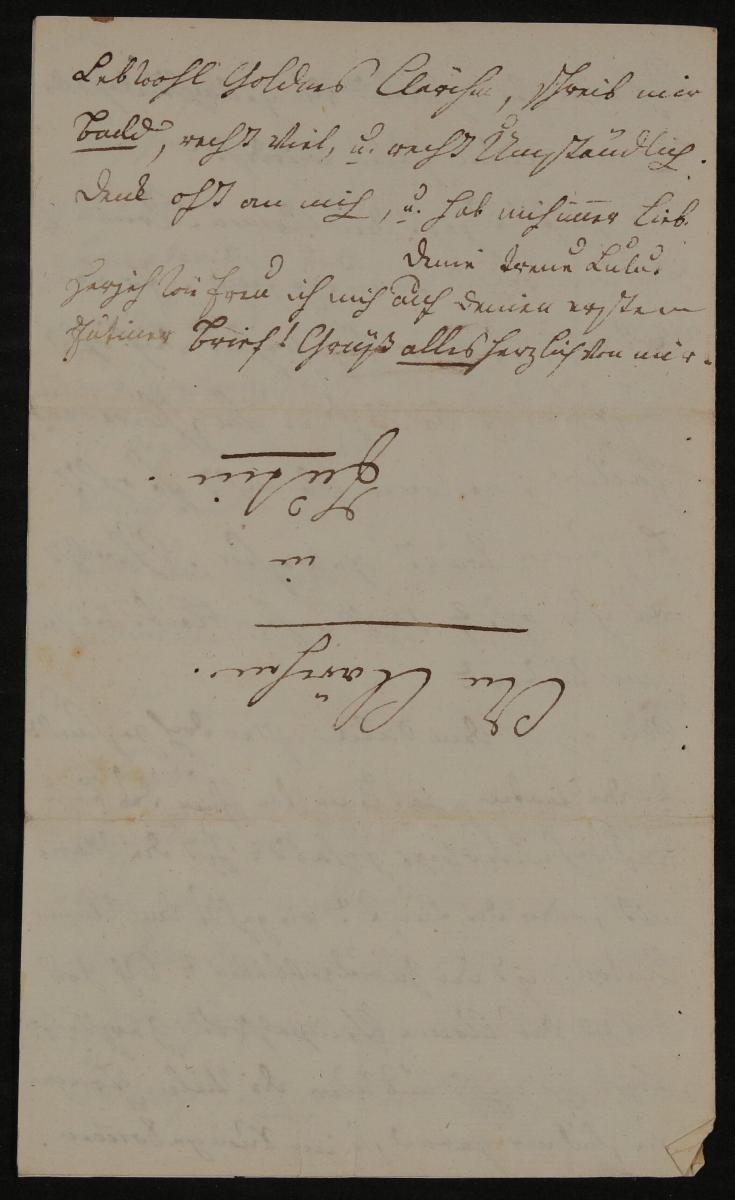 Lebwohl Goldnes Clärchen, schreib mir
Bald, recht viel, u. recht Umständlich.
Denk oft an mich, u. hab mich immer lieb.
Deine treue Lulu.
Herjeh wie freu ich mich auf deinen ersten
Brief! Grüß alles herzlich von mir.
An Clärchen.
in